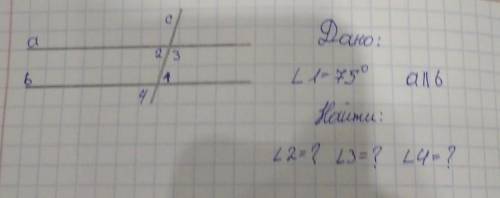 c
a
2 3
b
1
4
Дано:
∠1=75° a∥b
Найти:
∠2=? ∠3=? ∠4=?